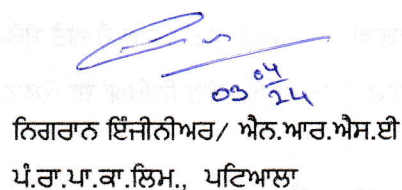 03/04/24
ਨਿਗਰਾਨ ਇੰਜੀਨੀਅਰ/ ਐਨ.ਆਰ.ਐਸ.ਈ
ਪੰ.ਰਾ.ਪਾ.ਕਾ.ਲਿਮ., ਪਟਿਆਲਾ